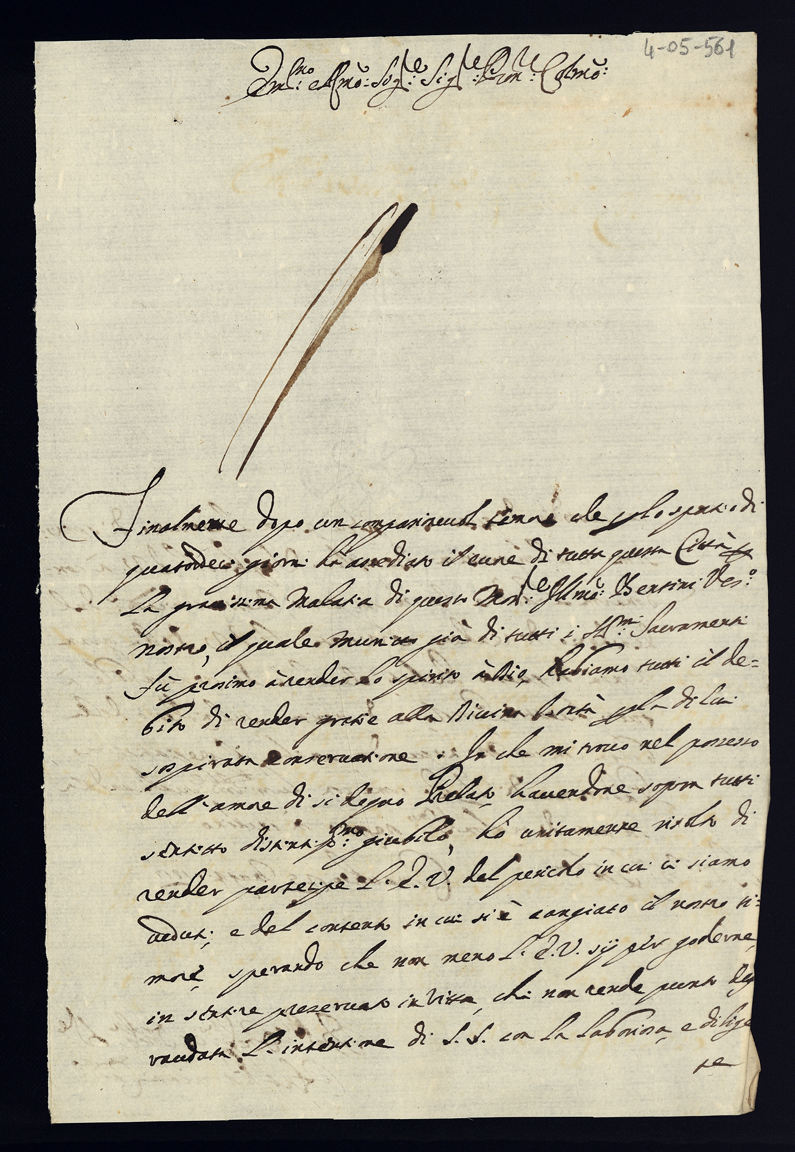 4-05-561
Ill.mo e R.mo Sig.re Sig.re Pron.e Col.mo
Finalmente dopo un comparineuol timore che p lo spatio di
quatordeci giorni hà assediato il cuore di tutta questa Città p
la grauissima malatia di questo Mons.re Illmo: Bertini Ves.o
nostro, il quale munito già di tutti i SS.mi Sacramenti
fù prossimo à render lo spirito à Dio, habiamo tutti il de=
bito di render gratie alla Diuina bontà p la di lui
sospirata conseruatione. Io che mi trouo nel possesso
dell'amore di sì degno Prelato, hauendone sopra tutti
sentito distintiss.mo giubilo, hò unitamente risolto di
render partecipe V.S.Ill. del pericolo in cui ci siamo
ueduti, e del contento in cui si è cangiato il nostro ti=
more, sperando che non meno sij per goderne
in sentire preseruato in Vita, chi non rende punto de
raudata l'intentione di S.S. con la laboriosa, e dilige
te